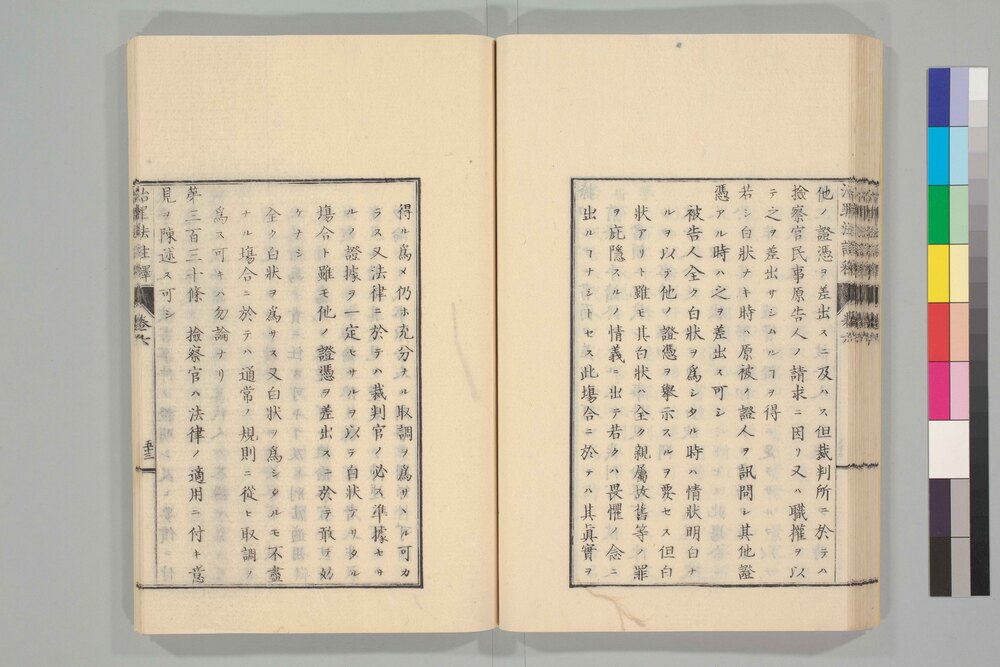 他ノ證憑ヲ差出スニ及ハス但裁判所ニ於テハ
撿察官民事原告人ノ請求ニ因リ又ハ職權ヲ以
テ之ヲ差出サシムルヿヲ得
若シ白狀ナキ時ハ原被ノ證人ヲ訊問シ其他證
憑アル時ハ之ヲ差出ス可シ
被告人全ク白狀ヲ爲シタル時ハ情狀明白ナ
ルヲ以テ他ノ證憑ヲ擧示スルヲ要セス但白
狀アリト雖モ其白狀ハ全ク親屬故舊等ノ罪
ヲ庇隱スルノ情義ニ出テ若クハ畏懼ノ念ニ
出ルヿナシトセス此塲合ニ於テハ其眞實ヲ
得ル爲メ仍ホ充分ナル取調ヲ爲サヽル可カ
ラス又法律ニ於テハ裁判官ノ必ス準據セサ
ルノ證據ヲ一定セサルヲ以テ白狀ヲリタル
塲合ト雖モ他ノ證憑ヲ差出スニ於テ敢テ妨
ケナシ
全ク白狀ヲ爲サス又白狀ヲ爲シタルモ不盡
ナル塲合ニ於テハ通常ノ規則ニ從ヒ取調ヲ
爲ス可キハ勿論ナリ
第三百三十條 撿察官ハ法律ノ適用ニ付キ意
見ヲ陳述ス可シ
治罪法註釋 卷六 五十三